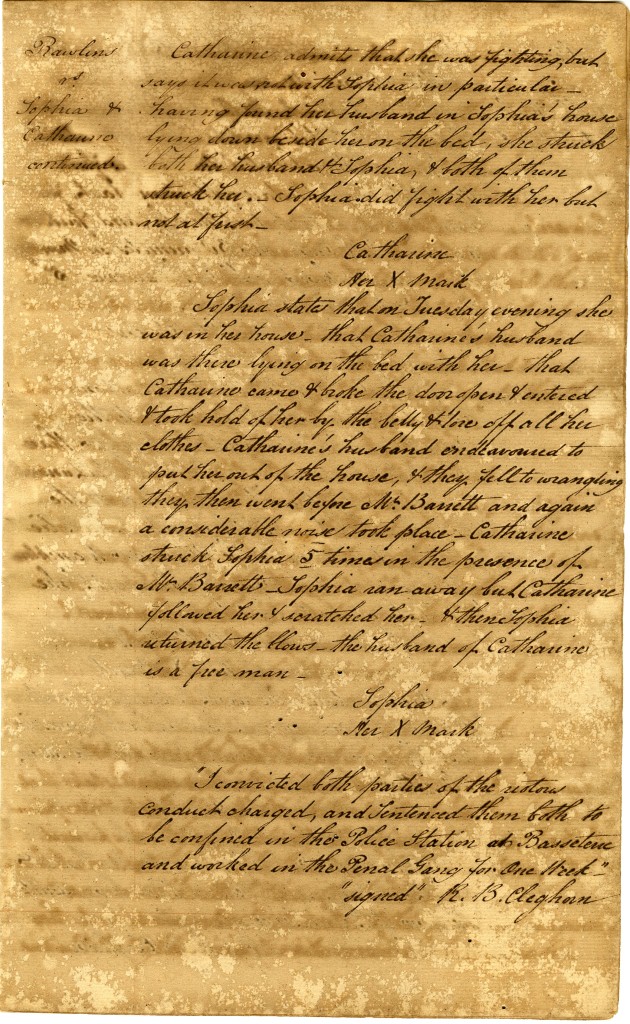 Rawlins
vs
Sophia &
Catharine
continued.
Catharine admits that she was fighting, but
says it was not with Sophia in particular –
having found her husband in Sophia's house
lying down beside her on the bed, she struck
both her husband & Sophia, & both of them
struck her. – Sophia did fight with her but
not at first –
Catharine
Her X Mark
Sophia states that on Tuesday evening she
was in her house – that Catharine's husband
was there lying on the bed with her – that
Catharine came & broke the door open & entered
& took hold of her by the belly & tore off all her
clothes – Catharine's husband endeavoured to
put her out of the house, & they fell to wrangling
they then went before Mr. Barrett and again
a considerable noise took place – Catharine
struck Sophia 5 times in the presence of
Mr. Barrett – Sophia ran away but Catharine
followed her & scratched her – & then Sophia
returned the blows – the husband of Catharine
is a free man –
Sophia
Her X Mark
"I convicted both parties of the riotous
conduct charged, and sentenced them both to
be confined in the Police Station at Basseterre
and worked in the Penal Gang for One Week"
"signed" R. B. Cleghorn